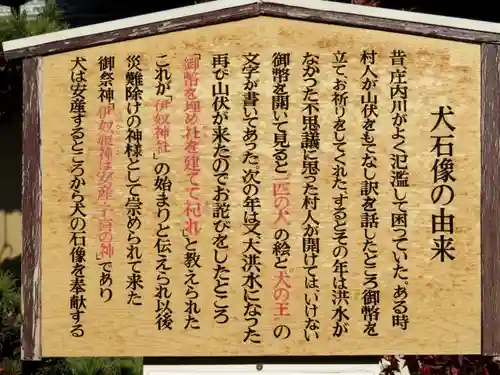 犬石像の由来
昔、庄内川がよく氾濫して困っていた。ある時
村人が山伏をもてなし訳を話したところ御幣を
立て、お祈りをしてくれた、するとその年は洪水が
なかった不思議に思った村人が開けてはいけない
御幣を開いて見ると「一匹の犬」の絵と「犬の王」の
文字が書いてあった、次の年は又、大洪水になった
再び山伏が来たのでお詫びをしたところ
「御幣を埋め社を建てて祀れ」と教えられた
これが「伊奴神社」の始まりと伝えられ以後
災難除けの神様として崇められて来た
御祭神「伊奴姫神は安産・子宮の神」であり
犬は安産するところから犬の石像を奉献する